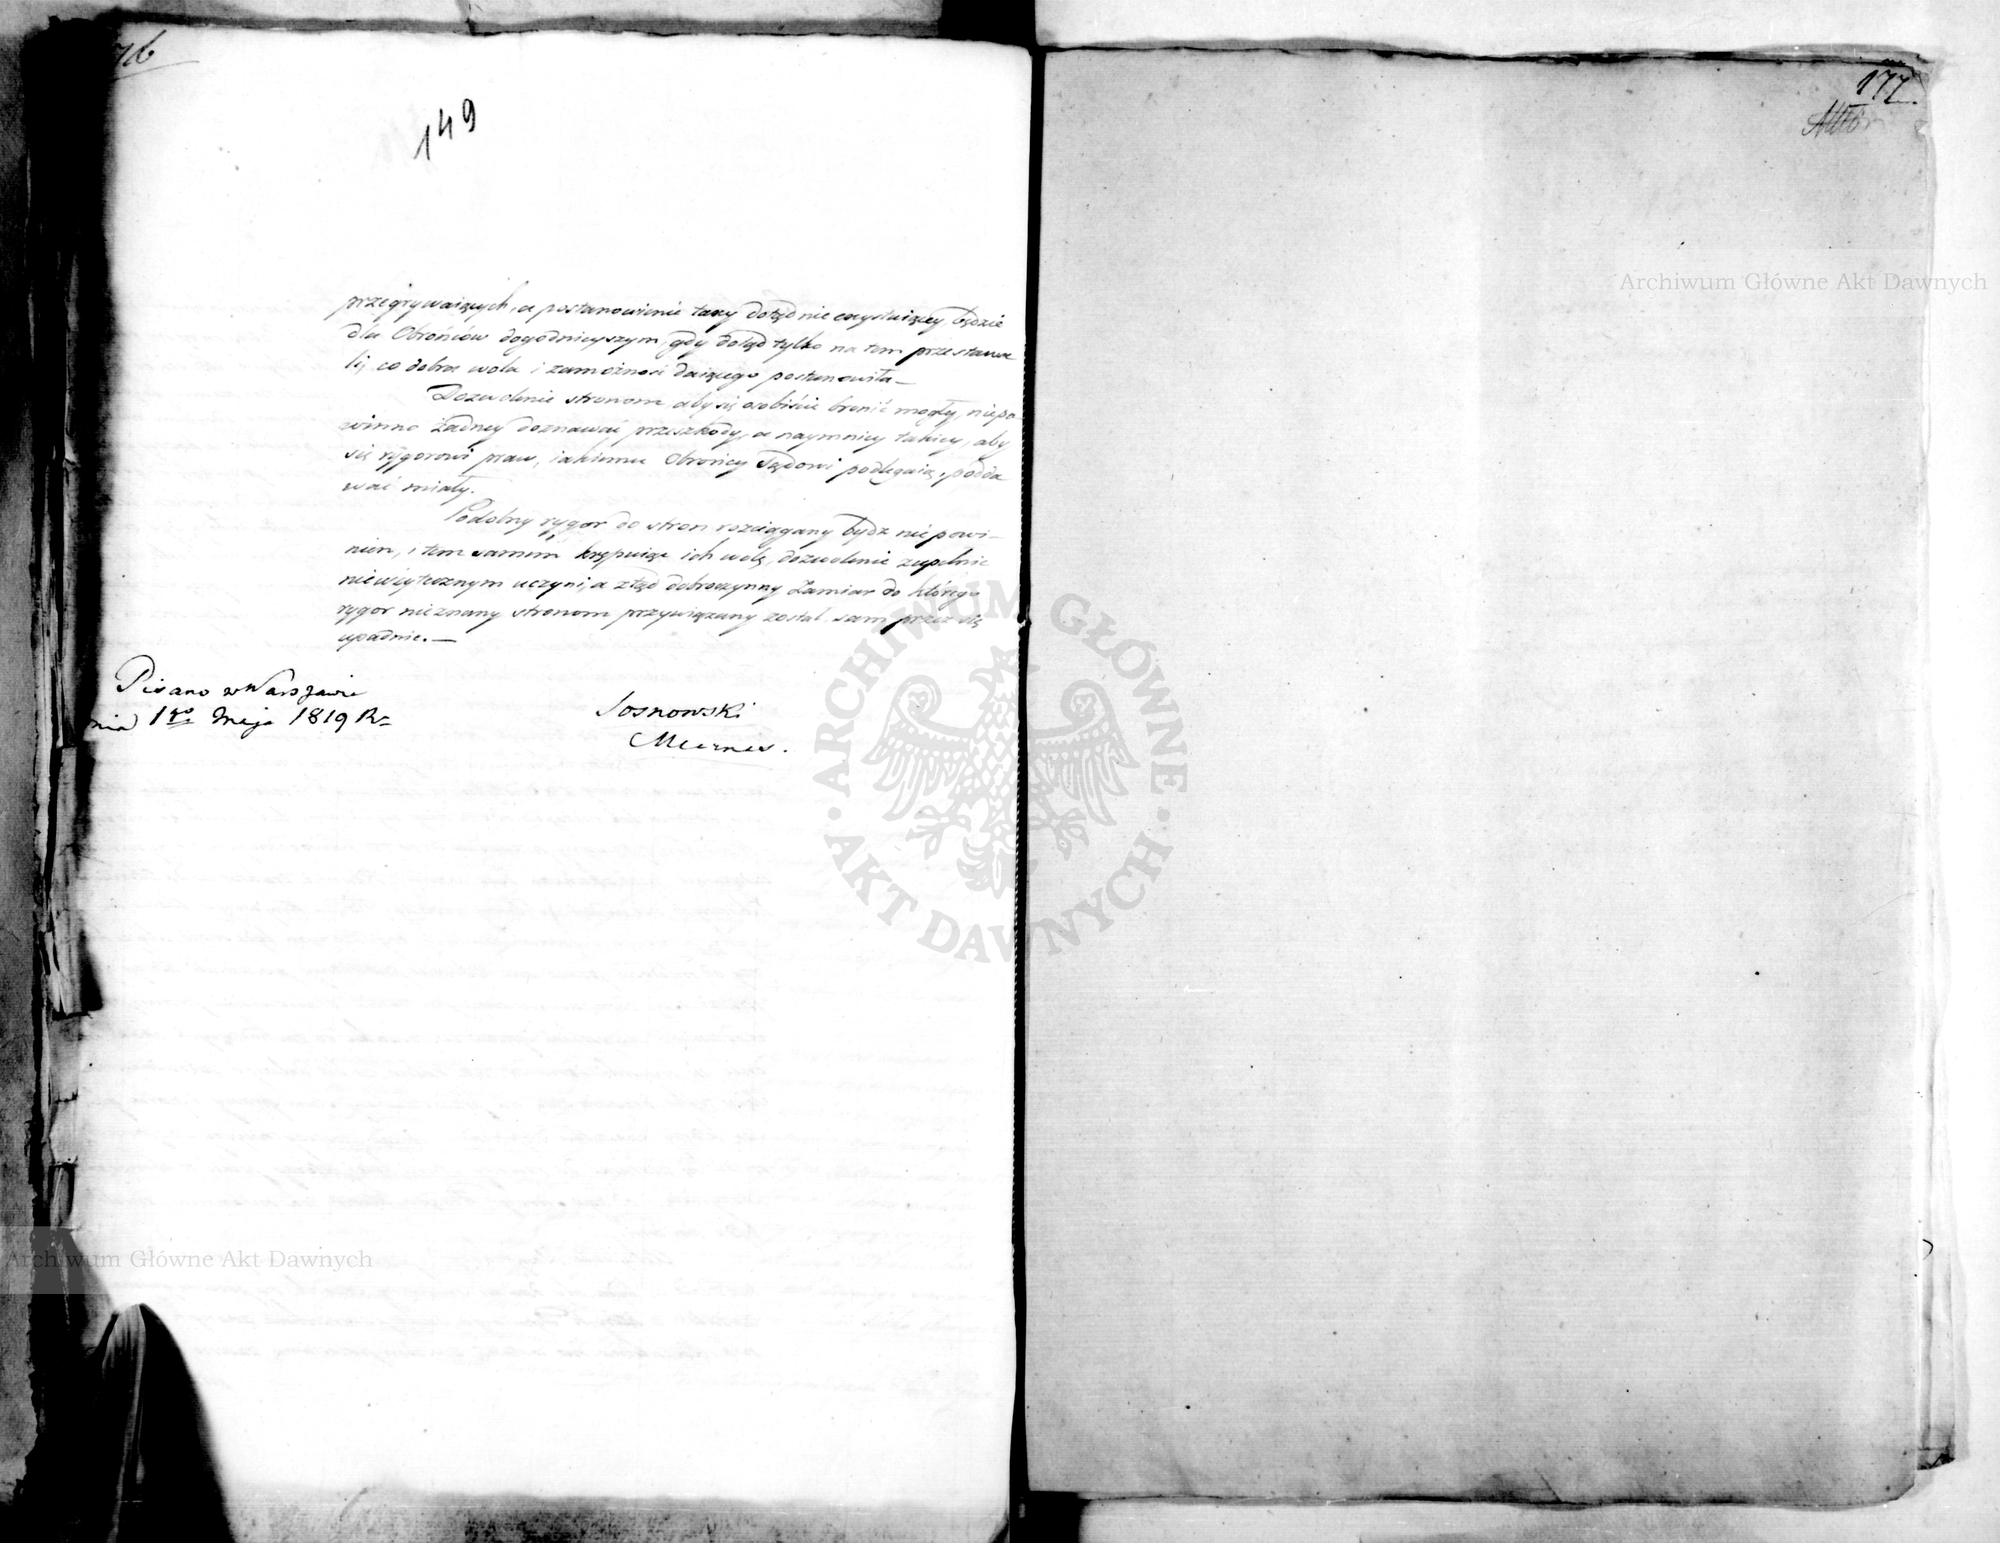 76
149
przegrywaiących, a postanowienie taxy dotąd nie exystuiącey, będzie
dla Obrońców dogodnieyszym, gdy dotąd tylko na tem przestawa
li, co dobra wola i zamożność daiącego postanowiła —
Dozwolenie stronom, aby się osobiście bronić mogły, niepo
winno żadney doznawać przeszkody, a naymniey takiey, aby
się rygorowi praw, iakiemu Obrońcy Sądowi podlegaią, podda
wać miały.
Podobny rygor do stron rozciągany bydź nie powi-
nien, i tem samem krępuiąc ich wolę, dozwolenie zupełnie
nieużytecznym uczyni, a ztąd dobroczynny zamiar do którego
rygor nieznany stronom przywiązany został sam przez się
upadnie. —
Pisano w Warszawie
dnia 1go Maja 1819 R.
Sosnowski
177.
Archiwum Główne Akt Dawnych
ARCHIWUM GŁÓWNE · AKT DAWNYCH ·
Archiwum Główne Akt Dawnych